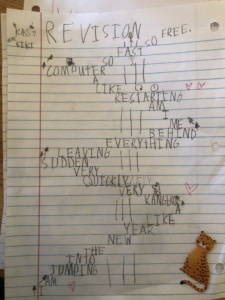 REVISION
KASY
KIKI
SO FREE.
FAST
SO
COMPUTER
A
LIKE
RESTARTING
AM
I
ME
BEHIND
EVERYTHING
LEAVING
SUDDEN
VERY
QUICKLY
VERY
KANGERO
A
LIKE
YEAR
NEW
THE
INTO
JUMPING
AM